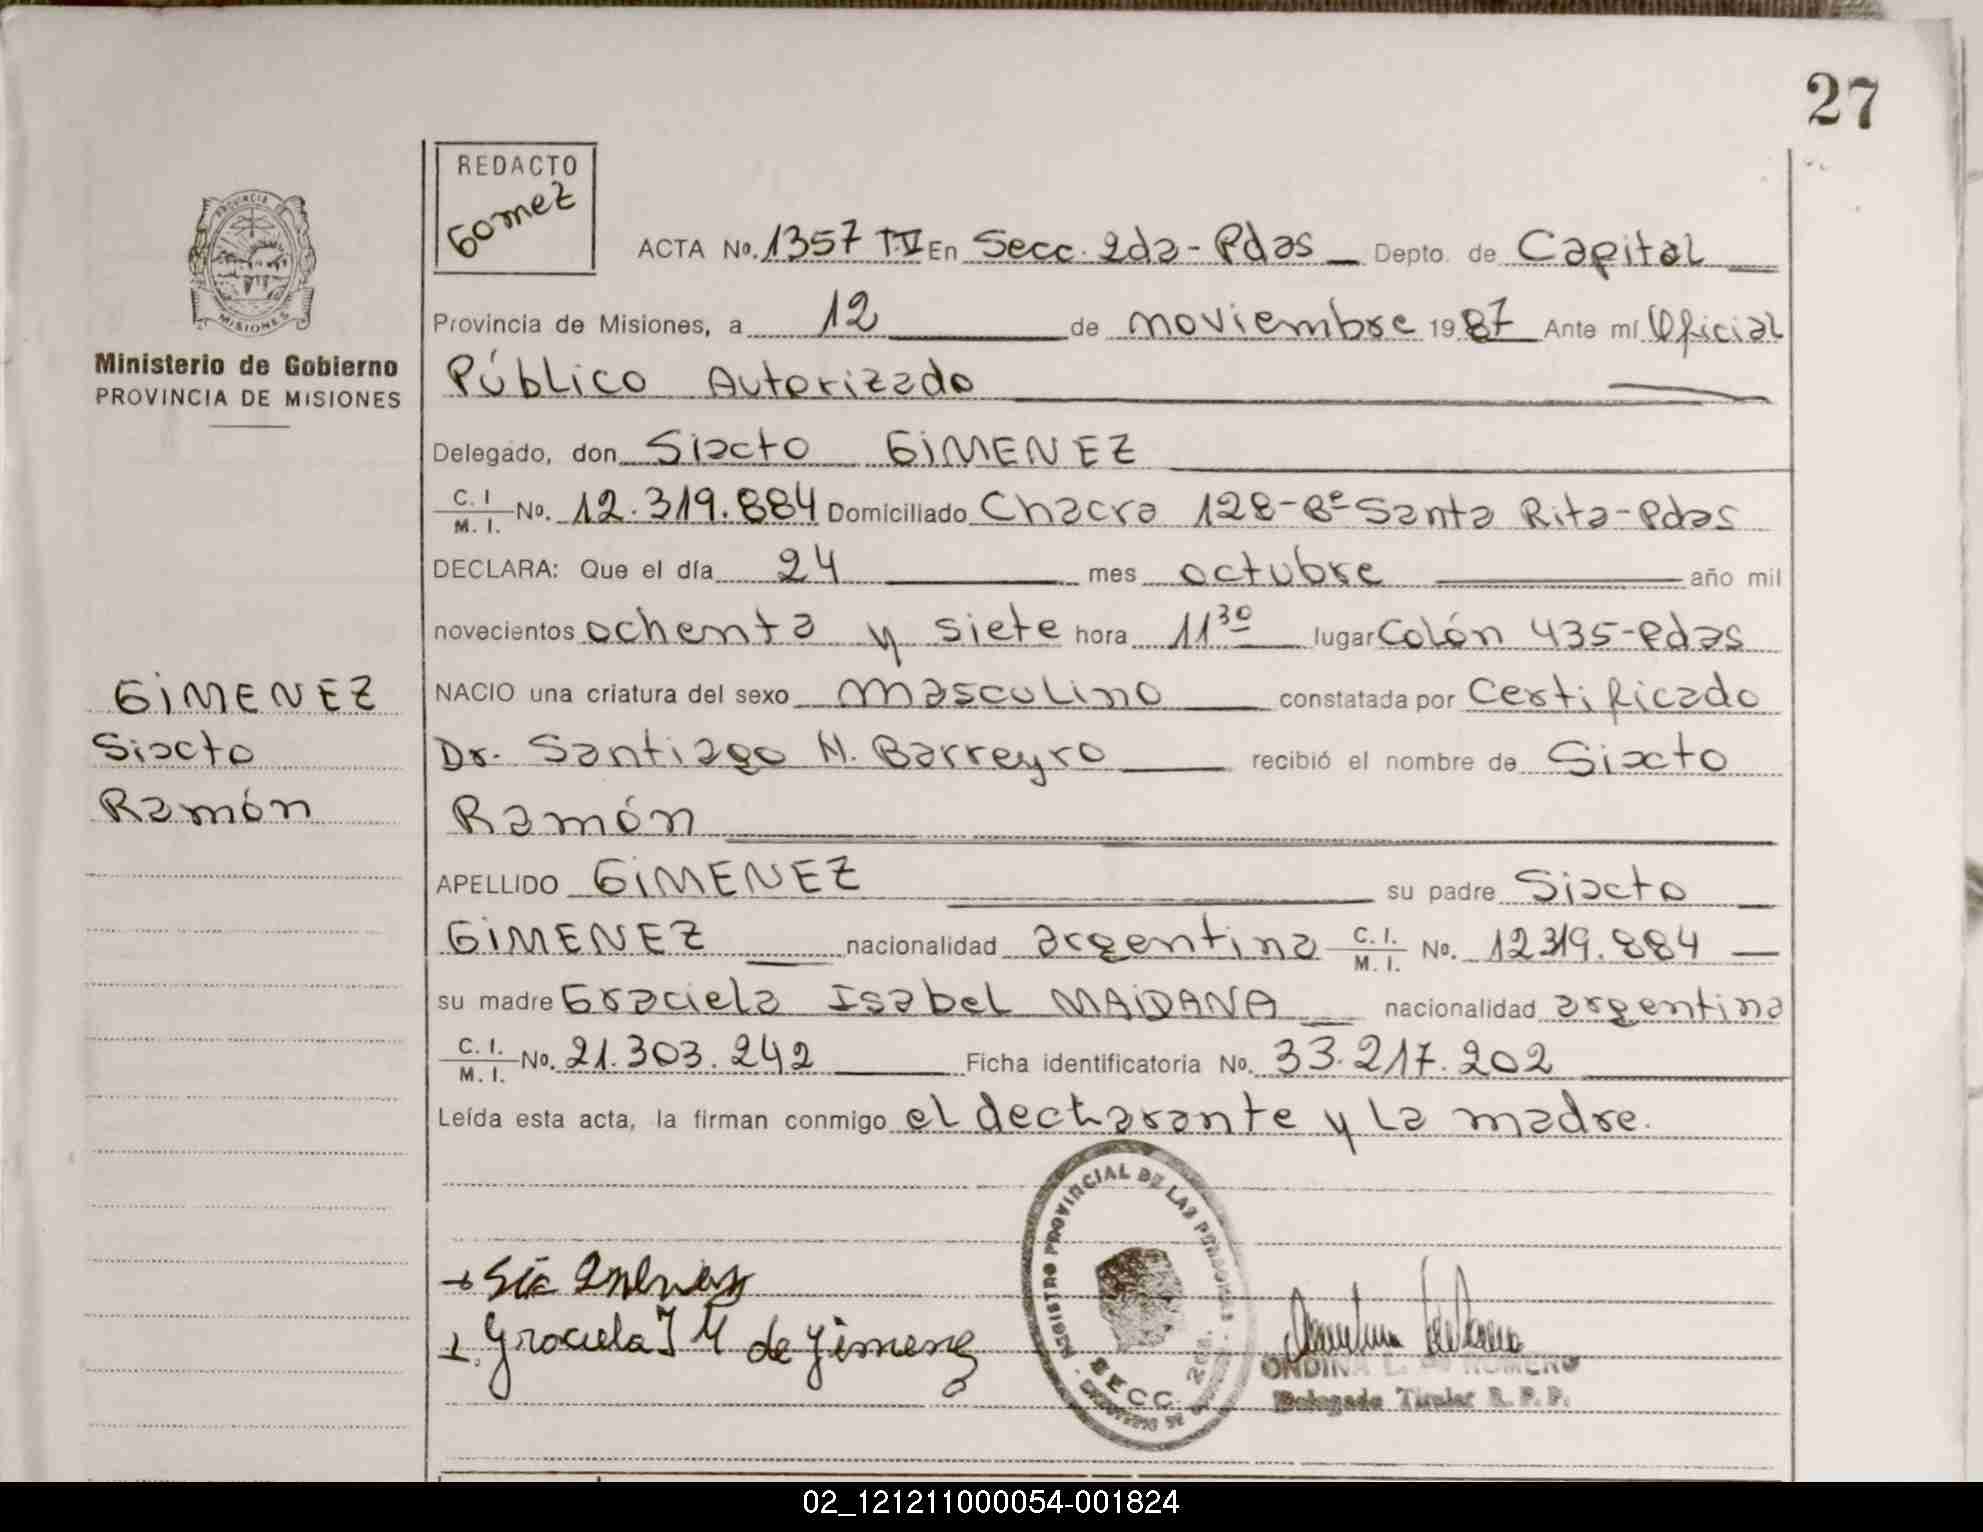 27
REDACTO
Gomez
ACTA No. 1357 T.V En Secc. 2da - Pdas Depto. de Capital
Provincia de Misiones, a 12 de noviembre 1987 Ante mí Oficial
Público Autorizado
PROVINCIA DE
MISIONES
Ministerio de Gobierno
PROVINCIA DE MISIONES
Delegado, don Sixto GIMENEZ
C. I. / M. I. No. 12.319.884 Domiciliado Chacra 128-Bº Santa Rita-Pdas
DECLARA: Que el día 24 mes octubre año mil
novecientos ochenta y siete hora 11 30 lugar Colón 435-Pdas
NACIO una criatura del sexo masculino constatada por Certificado
Dr. Santiago M. Barreyro recibió el nombre de Sixto
Ramón
GIMENEZ
Sixto
Ramón
APELLIDO GIMENEZ su padre Sixto
GIMENEZ nacionalidad argentina C. I. / M. I. No. 12319.884
su madre Graciela Isabel MAIDANA nacionalidad argentina
C. I. / M. I. No. 21.303.242 Ficha identificatoria No. 33.217.202
Leída esta acta, la firman conmigo el declarante y la madre.
Graciela I M de Jimenez
REGISTRO PROVINCIAL DE LAS PERSONAS
SECC. 2da.
ONDINA L. de ROMERO
Delegada Titular R. P. P.
02_121211000054-001824